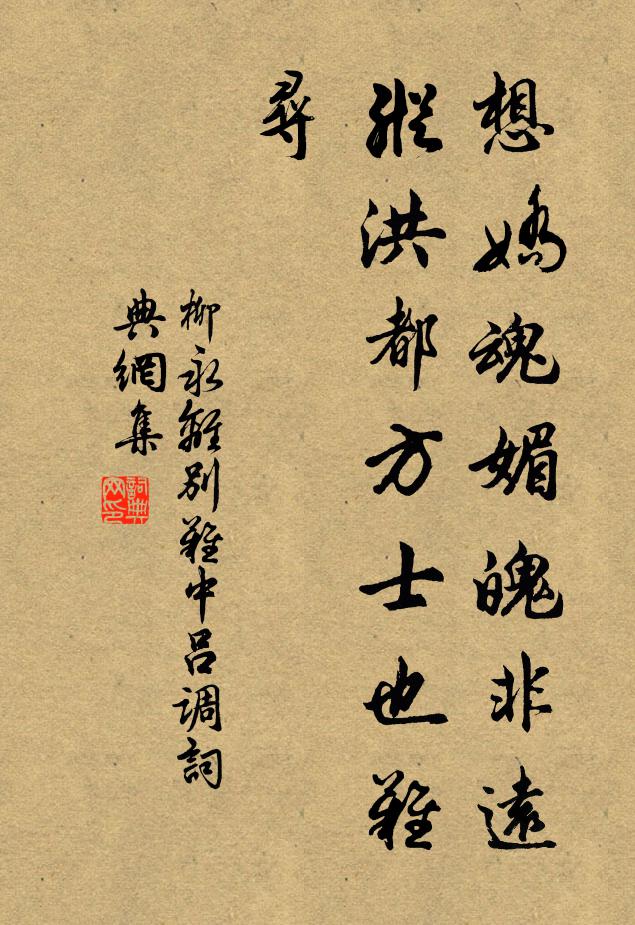 想嬌魂媚魄非遠
縱洪都方士也難
尋
柳永離別難中呂調詞
典網集
詞典网印